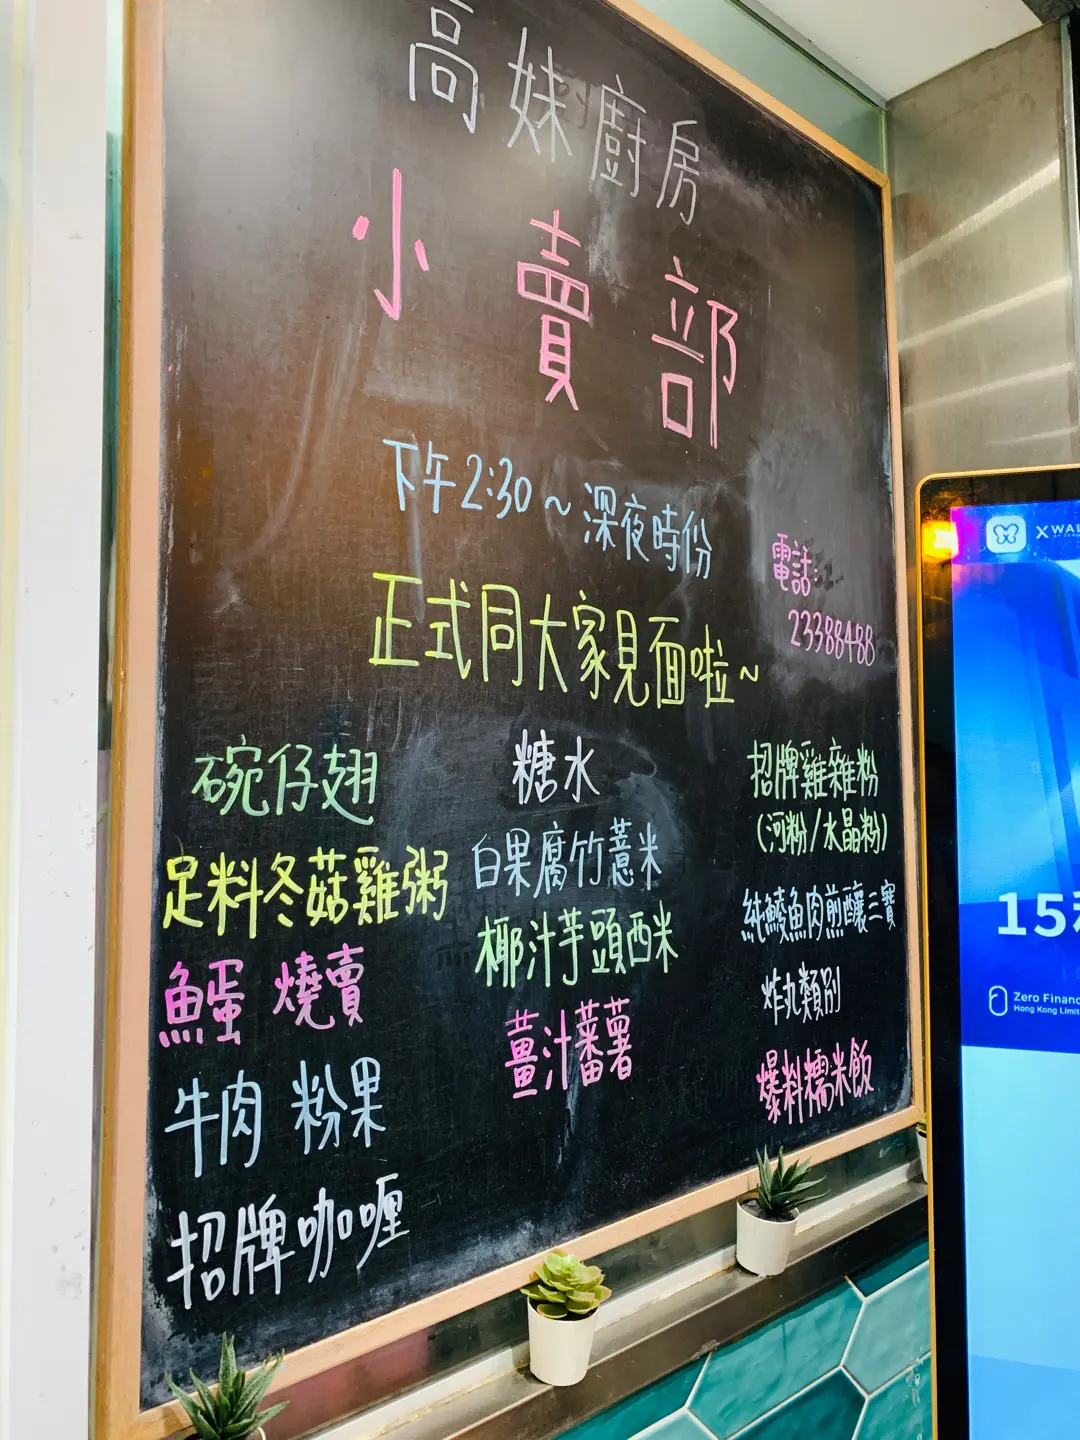 高妹廚房
小賣部
下午2:30～深夜時份
正式同大家見面啦～
電話:
23388488
碗仔翅
足料冬菇雞粥
魚蛋 燒賣
牛肉 粉果
招牌咖喱
糖水
白果腐竹薏米
椰汁芋頭西米
薑汁蕃薯
招牌雞雜粉
(河粉/水晶粉)
純鯪魚肉煎釀三寶
炸丸類別
爆料糯米飯
X WAL
15
Zero Financ
Hong Kong Limit